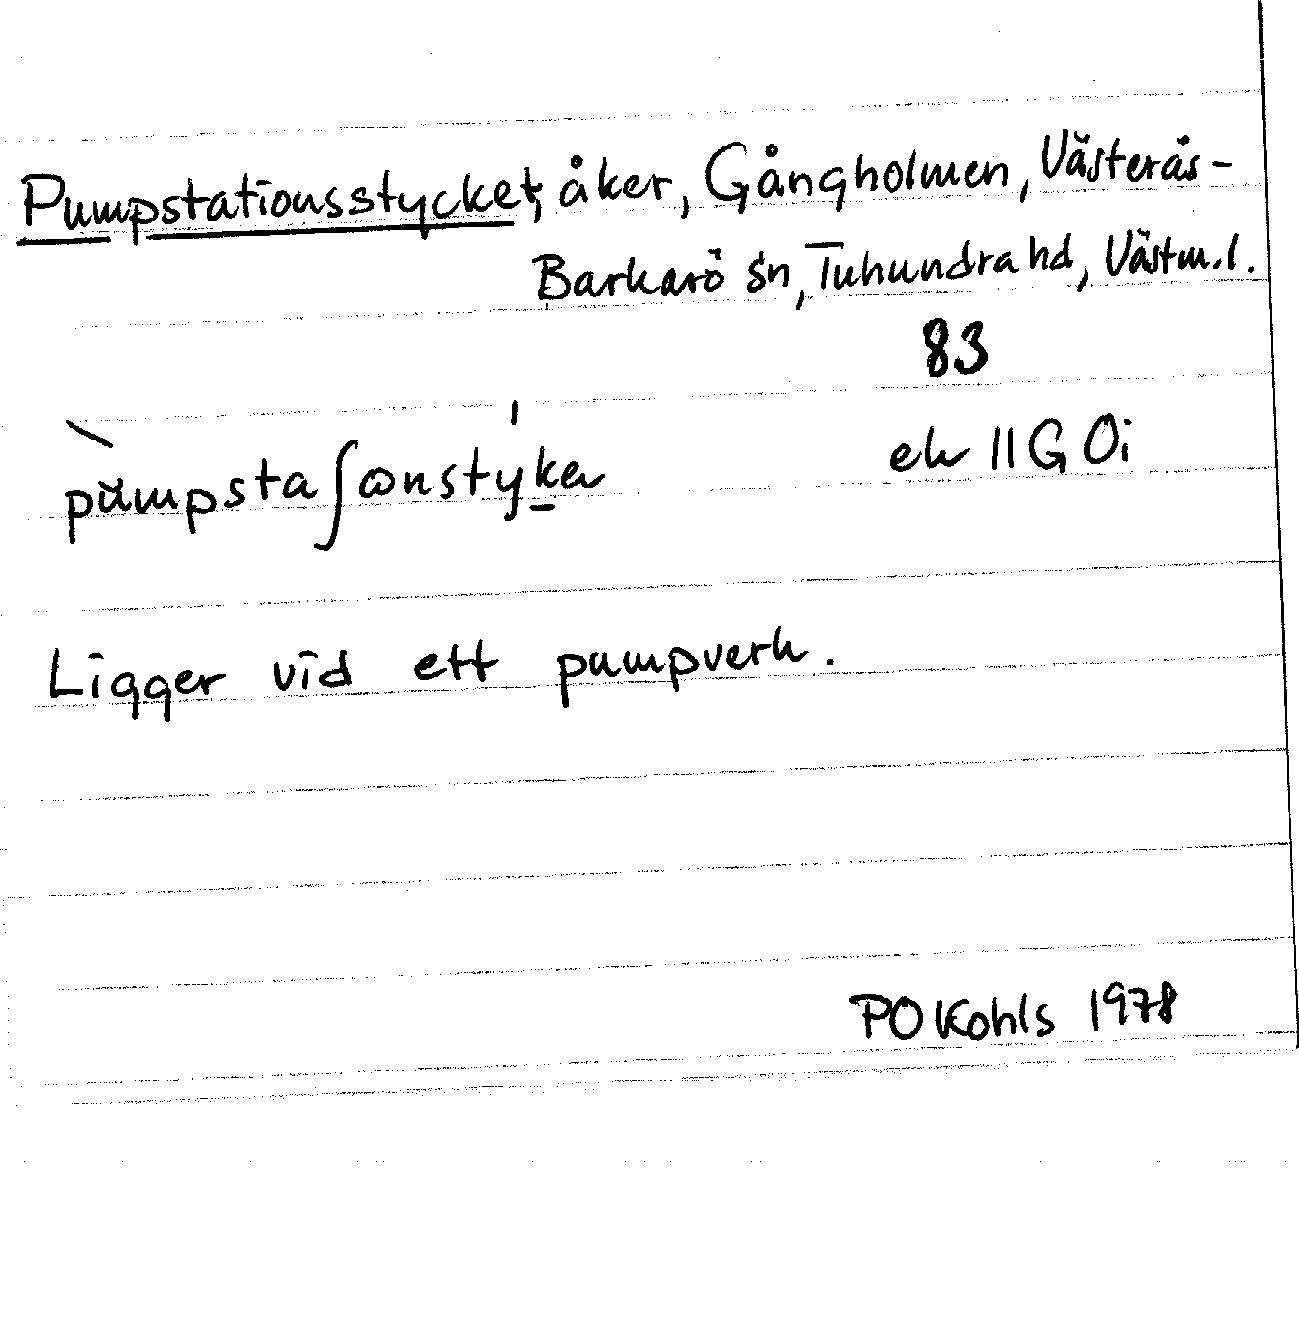 Pumpstationsstycket, åker, Gångholmen, Västerås-
Barkarö sn, Tuhundra hd, Västm.l.
83
ek 11G 0i
Ligger vid ett pumpverk.
PO Kohls 1978